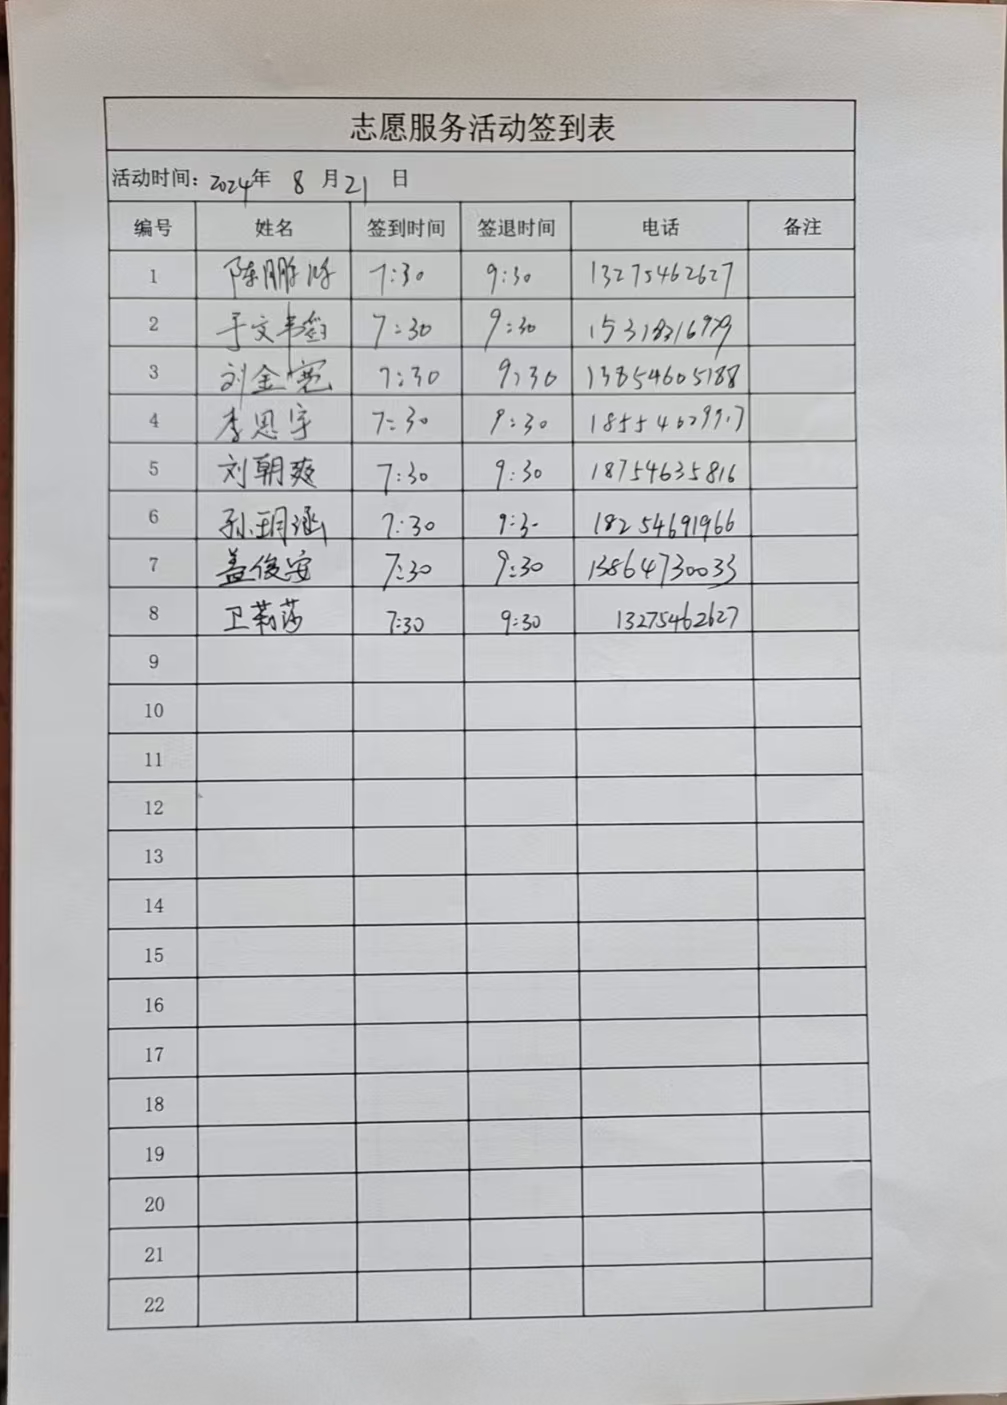 志愿服务活动签到表
活动时间：2024年 8 月 21 日
编号 姓名 签到时间 签退时间 电话 备注
1 陈鹏 7:30 9:30 13275462627
2 于文 7:30 9:30
3 刘金宽 7:30 9:30 13854605188
4 李思宇 7:30 9:30
5 刘朝爽 7:30 9:30 18754635816
6 孙玥涵 7:30 9:3- 18254691966
7 盖俊安 7:30 9:30 13864730033
8 卫莉莎 7:30 9:30 13275462627
9
10
11
12
13
14
15
16
17
18
19
20
21
22